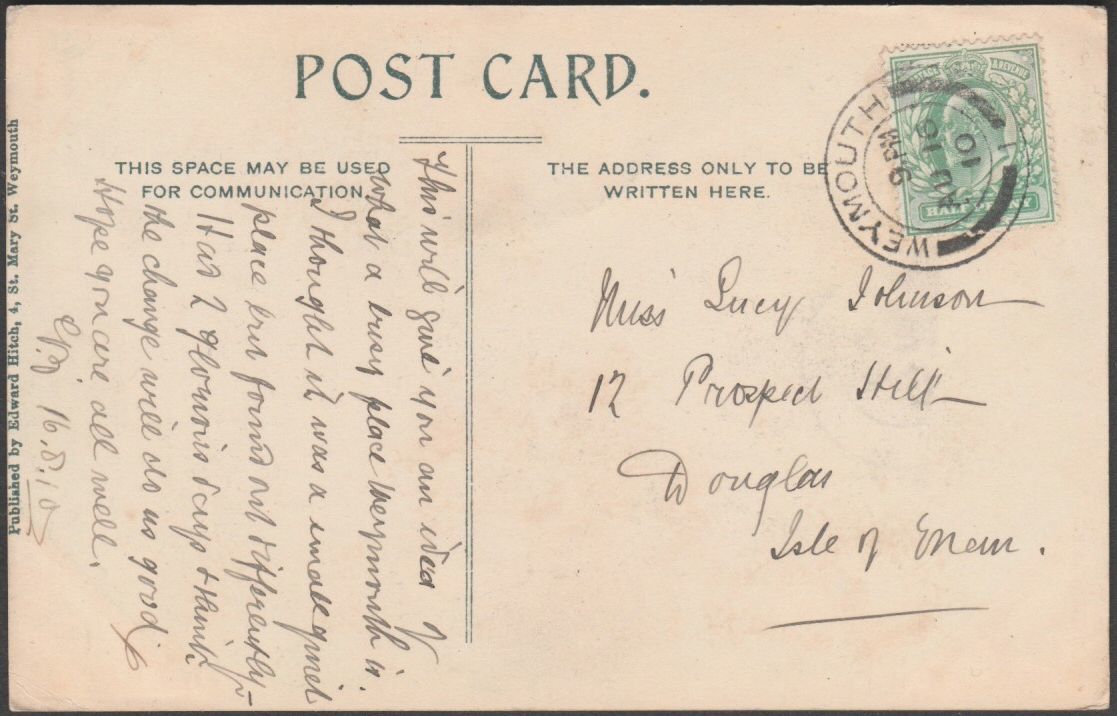 POST CARD.
THIS SPACE MAY BE USED
FOR COMMUNICATION.
THE ADDRESS ONLY TO BE
WRITTEN HERE.
Published by Edward Hitch, 4, St. Mary St. Weymouth
WEYMOUTH
9 PM
AU 16
10
HALFPENNY
This will give you an idea of
what a busy place Weymouth is.
I thought it was a small quiet
place but found out differently-
Had 2 glorious days & think
the change will do us good
Hope you are all well.
16.8.10
Miss Lucy Johnson
12 Prospect Hill
Douglas
Isle of Man.